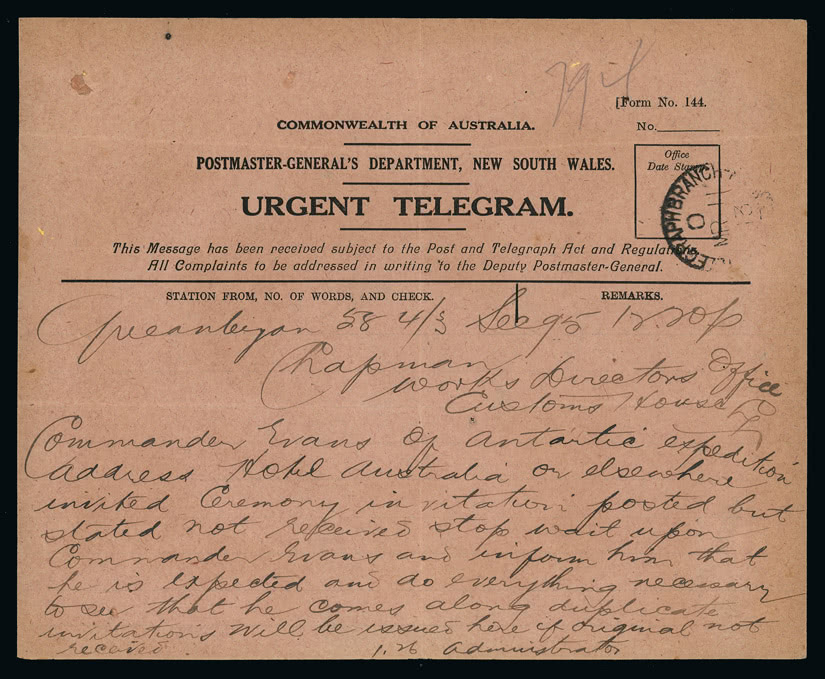 [Form No. 144.
COMMONWEALTH OF AUSTRALIA.
No.
POSTMASTER-GENERAL'S DEPARTMENT, NEW SOUTH WALES.
Office
Date Stamp
TELEGRAPH BRANCH
URGENT TELEGRAM.
This Message has been received subject to the Post and Telegraph Act and Regulations.
All Complaints to be addressed in writing to the Deputy Postmaster-General.
STATION FROM, NO. OF WORDS, AND CHECK.
REMARKS.
Queanbeyan 58 4/3
Chapman
Works Directors Office
Customs House
Commander Evans of antartic expedition
address Hotel Australia or elsewhere
invited Ceremony invitation posted but
stated not received stop wait upon
Commander Evans and inform him that
he is expected and do everything necessary
to see that he comes along duplicate
invitations will be issued here if original not
received administrator